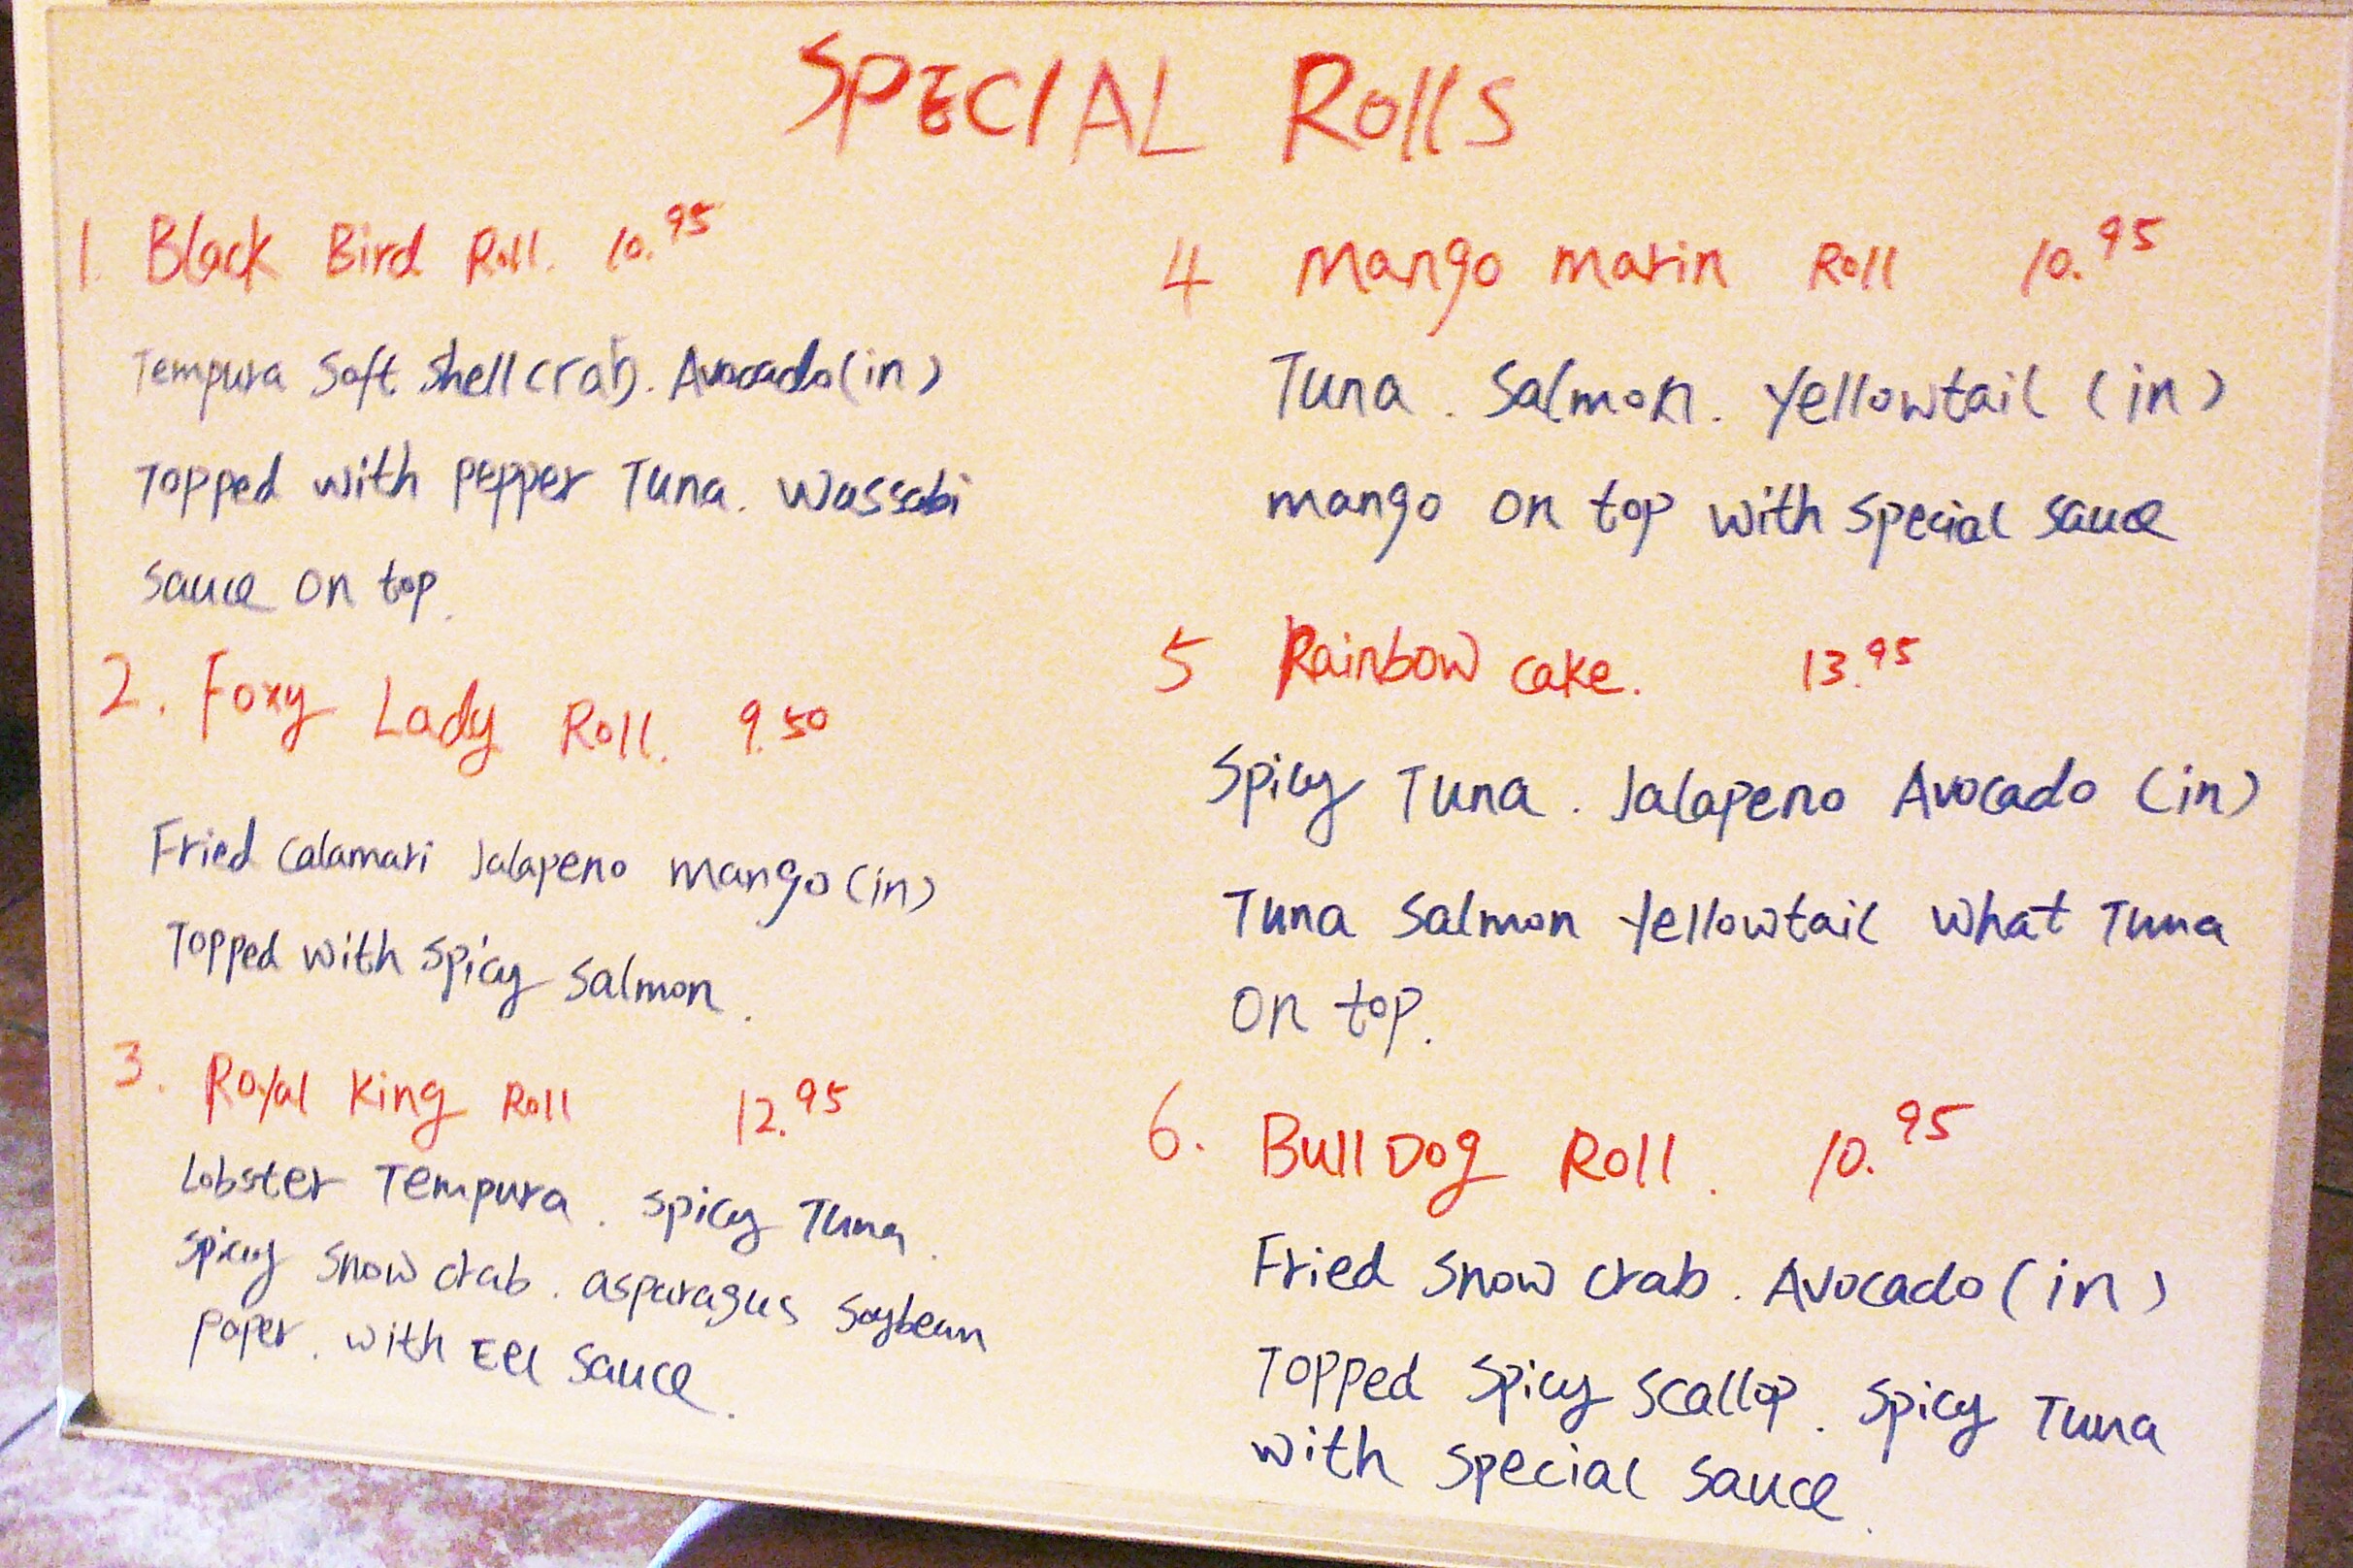 SPECIAL Rolls
1. Black Bird Roll. 10.95
Tempura Soft Shell crab. Avocado (in)
Topped with pepper Tuna. Wassabi
Sauce on top.
2. Foxy Lady Roll. 9.50
Fried calamari Jalapeno mango (in)
Topped with spicy salmon.
3. Royal King Roll 12.95
Lobster Tempura. spicy Tuna.
spicy snow crab. asparagus soybean
paper. with Eel Sauce.
4 Mango marin Roll 10.95
Tuna. Salmon. Yellowtail (in)
mango on top with special sauce
5 Rainbow cake. 13.95
Spicy Tuna. Jalapeno Avocado (in)
Tuna Salmon Yellowtail what Tuna
on top.
6. Bull Dog Roll. 10.95
Fried snow crab. Avocado (in)
Topped spicy scallop. spicy Tuna
with special sauce.